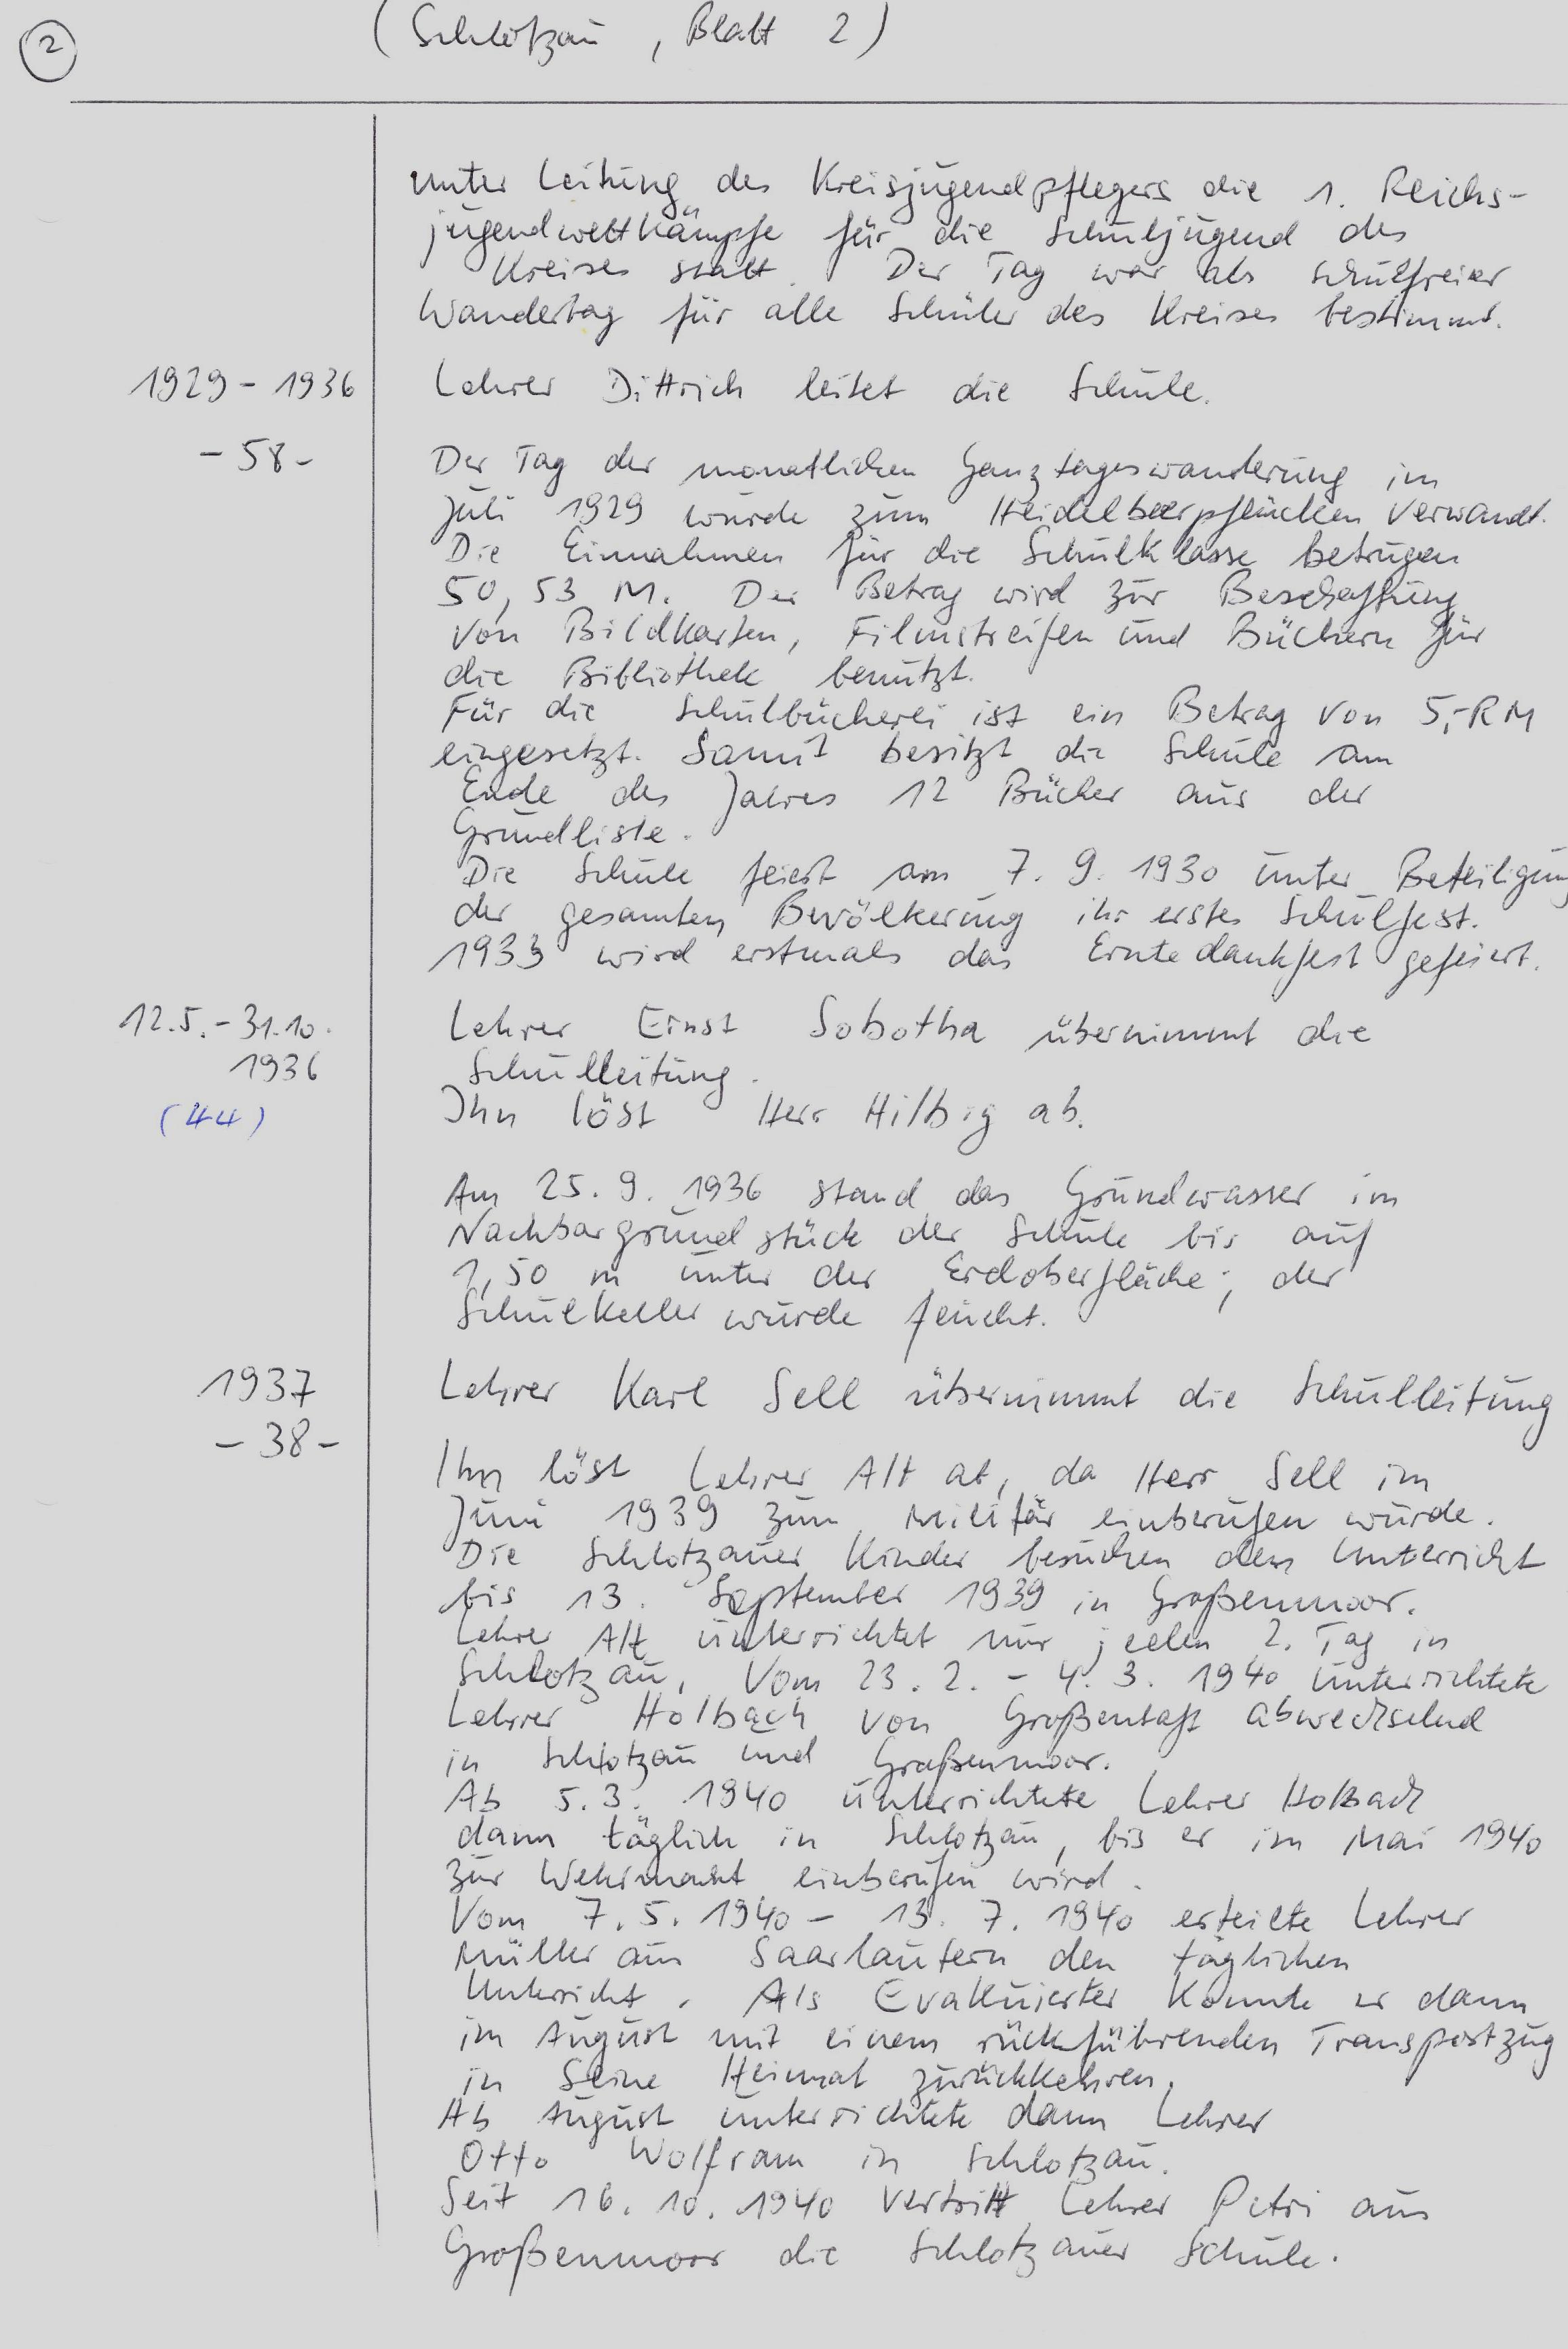 2
(Schlotzau, Blatt 2)
unter Leitung des Kreisjugendpflegers die 1. Reichs-
jugendwettkämpfe für die Schuljugend des
Kreises statt. Der Tag war als schulfreier
Wandertag für alle Schüler des Kreises bestimmt.
1929 - 1936 Lehrer Dittrich leitet die Schule.
- 58 - Der Tag der monatlichen Ganztageswanderung im
Juli 1929 wurde zum Heidelbeerpflücken verwandt.
Die Einnahmen für die Schulklasse betrugen
50,53 M. Der Betrag wird zur Beschaffung
von Bildkarten, Filmstreifen und Büchern für
die Bibliothek benutzt.
Für die Schulbücherei ist ein Betrag von 5,- RM
eingesetzt. Somit besitzt die Schule am
Ende des Jahres 12 Bücher aus der
Grundliste.
Die Schule feiert am 7. 9. 1930 unter Beteiligung
der gesamten Bevölkerung ihr erstes Schulfest.
1933 wird erstmals das Erntedankfest gefeiert.
12.5. - 31.10. Lehrer Ernst Sobotha übernimmt die
1936 Schulleitung.
(44) Ihn löst Herr Hilbig ab.
Am 25. 9. 1936 stand das Grundwasser im
Nachbargrundstück der Schule bis auf
1,50 m unter der Erdoberfläche; der
Schulkeller wurde feucht.
1937 Lehrer Karl Sell übernimmt die Schulleitung
- 38 -
Ihn löst Lehrer Alt ab, da Herr Sell im
Juni 1939 zum Militär einberufen wurde.
Die Schlotzauer Kinder besuchen den Unterricht
bis 13. September 1939 in Großenmoor.
Lehrer Alt unterrichtet nur jeden 2. Tag in
Schlotzau. Vom 23. 2. - 4. 3. 1940 unterrichtete
Lehrer Holbach von Großentaft abwechselnd
in Schlotzau und Großenmoor.
Ab 5. 3. 1940 unterrichtete Lehrer Holbach
dann täglich in Schlotzau, bis er im Mai 1940
zur Wehrmacht einberufen wird.
Vom 7. 5. 1940 - 13. 7. 1940 erteilte Lehrer
Müller aus Saarlautern den täglichen
Unterricht. Als Evakuierter konnte er dann
im August mit einem rückführenden Transportzug
in seine Heimat zurückkehren.
Ab August unterrichtete dann Lehrer
Otto Wolfram in Schlotzau.
Seit 16. 10. 1940 vertritt Lehrer Petri aus
Großenmoor die Schlotzauer Schule.